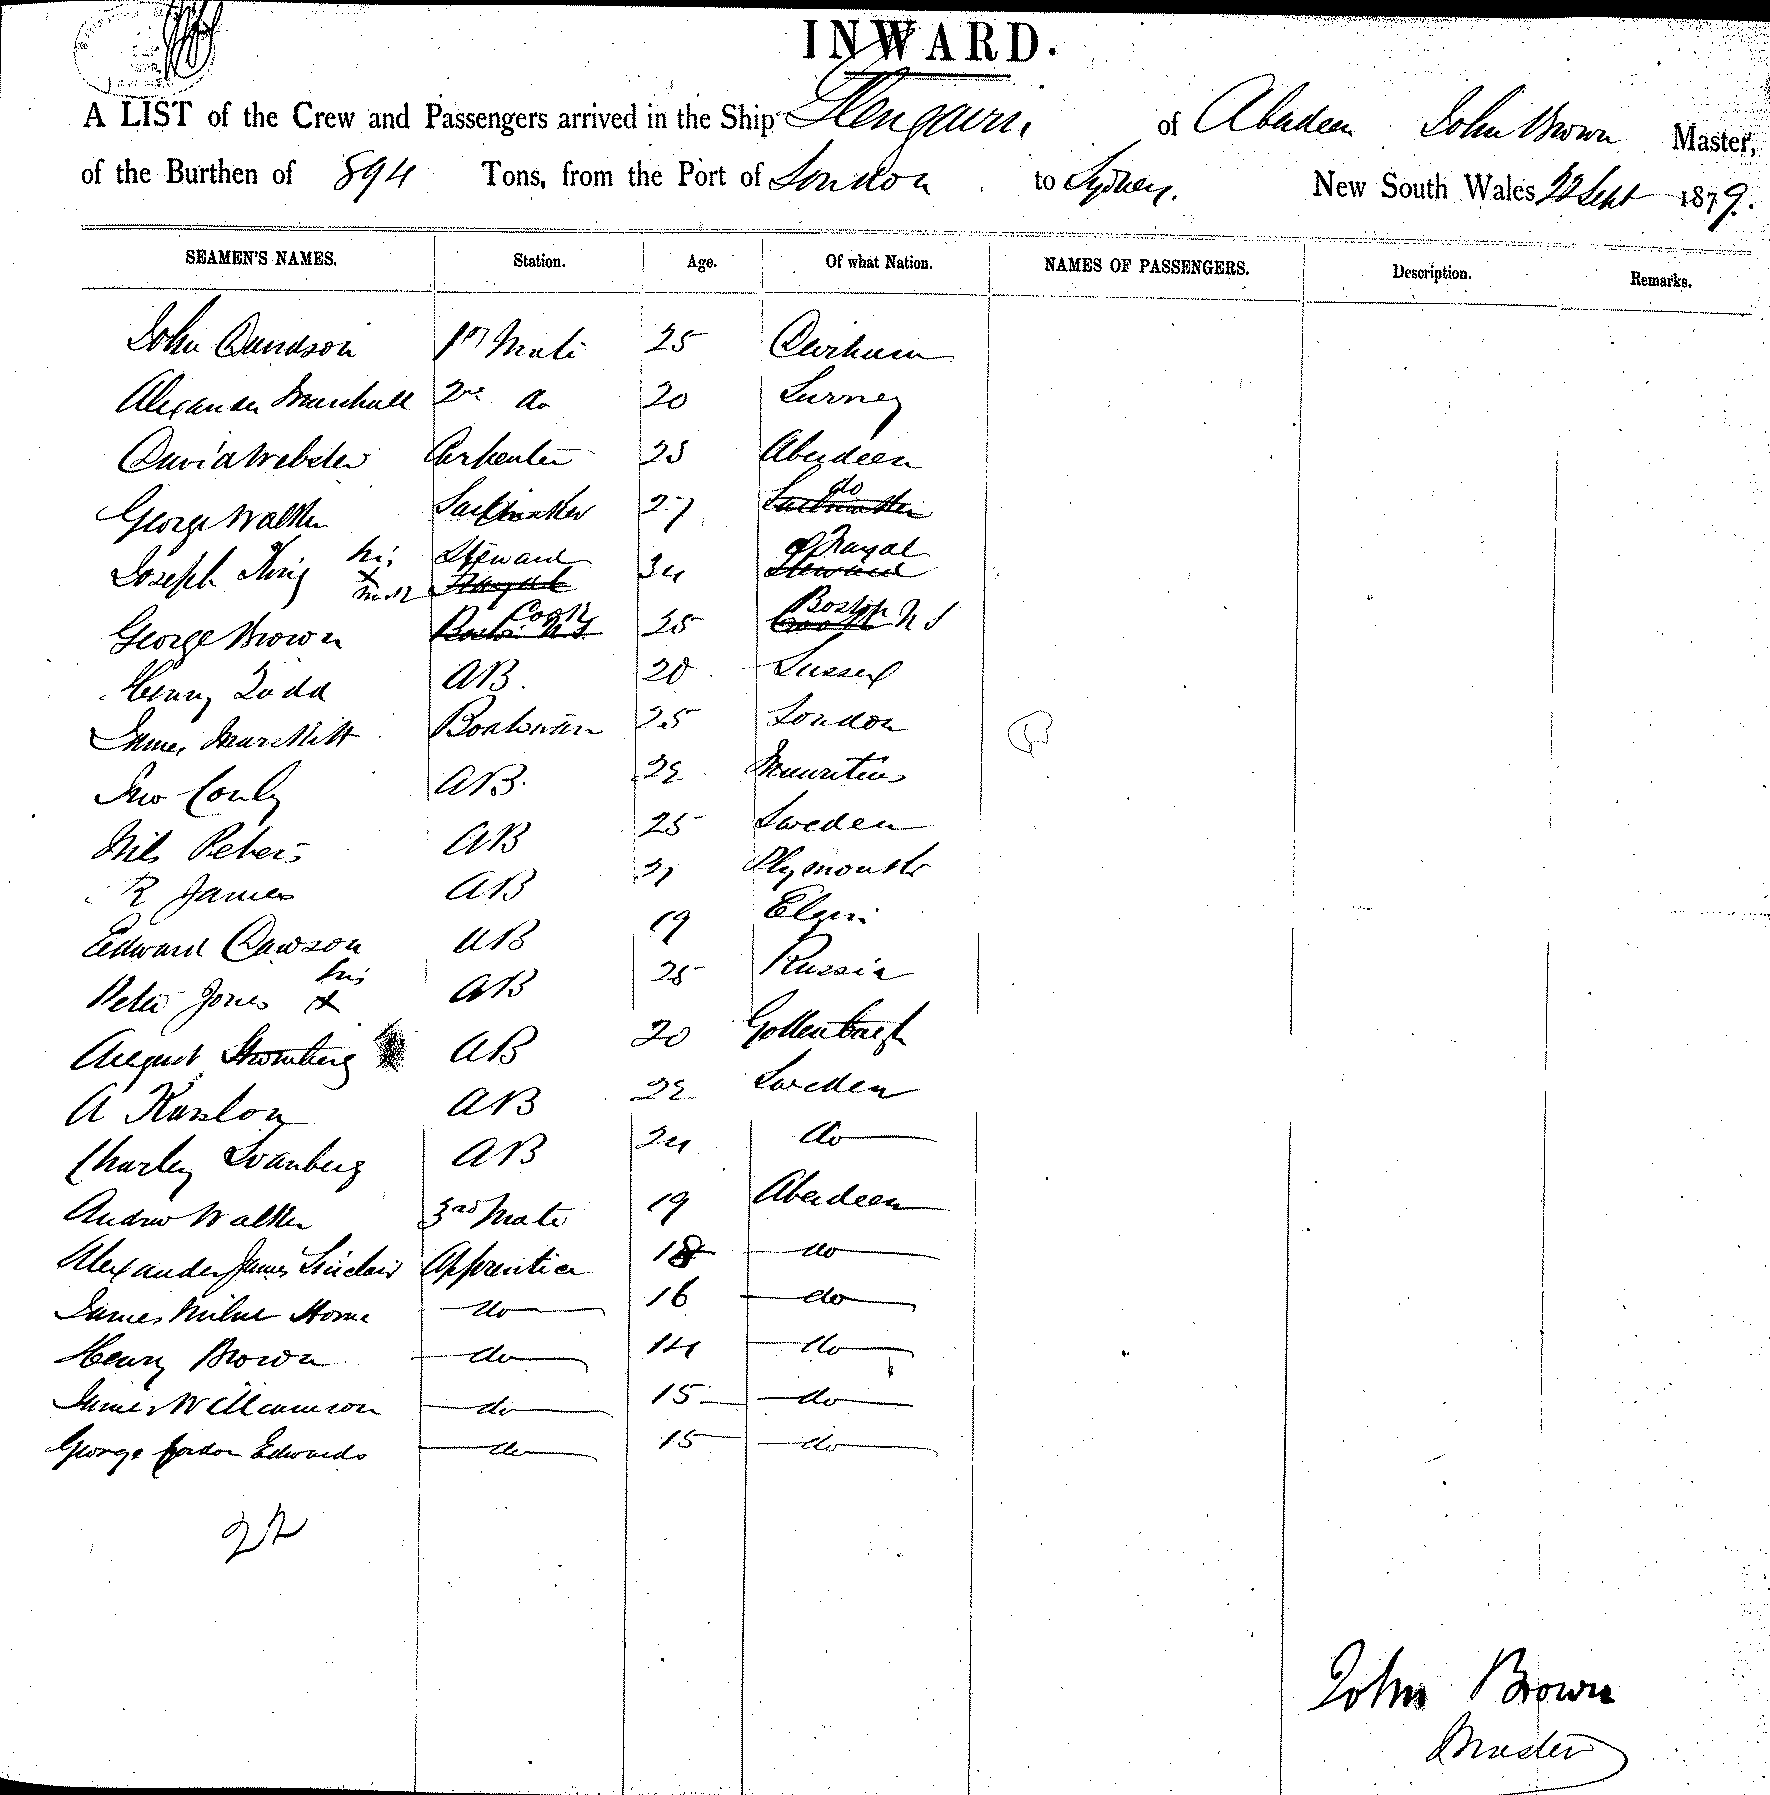 INWARD.
A LIST of the Crew and Passengers arrived in the Ship Glengairn of Aberdeen John Brown Master,
of the Burthen of 894 Tons, from the Port of London to Sydney. New South Wales 22 Sept 1879.
SEAMEN'S NAMES. Station. Age. Of what Nation. NAMES OF PASSENGERS. Description. Remarks.
John Davidson 1st Mate 25 Durham
Alexander Marshall 2nd do 20 Surrey
David Webster Carpenter 23 Aberdeen
George Walker Sailmaker 27 do
Joseph King his x mark Steward 34
George Brown Cook 25 Boston U S
Henry Todd AB. 20 Sussex
James Boatswain 25 London
Jno Conly AB. 22 Mauritius
Nils Peters AB 25 Sweden
R James AB 21 Plymouth
Edward Dawson AB 19 Elgin
Peter Jones his x AB 25 Russia
August Stromberg AB 20 Gottenburgh
A Karslon AB 22 Sweden
Charley Svanberg AB 24 do
Andrew Walker 3rd Mate 19 Aberdeen
Alexander James Sinclair Apprentice 18 do
James Milne Horne do 16 do
Henry Brown do 14 do
James Williamson do 15 do
George Gordon Edwards do 15 do
22
John Brown
Master